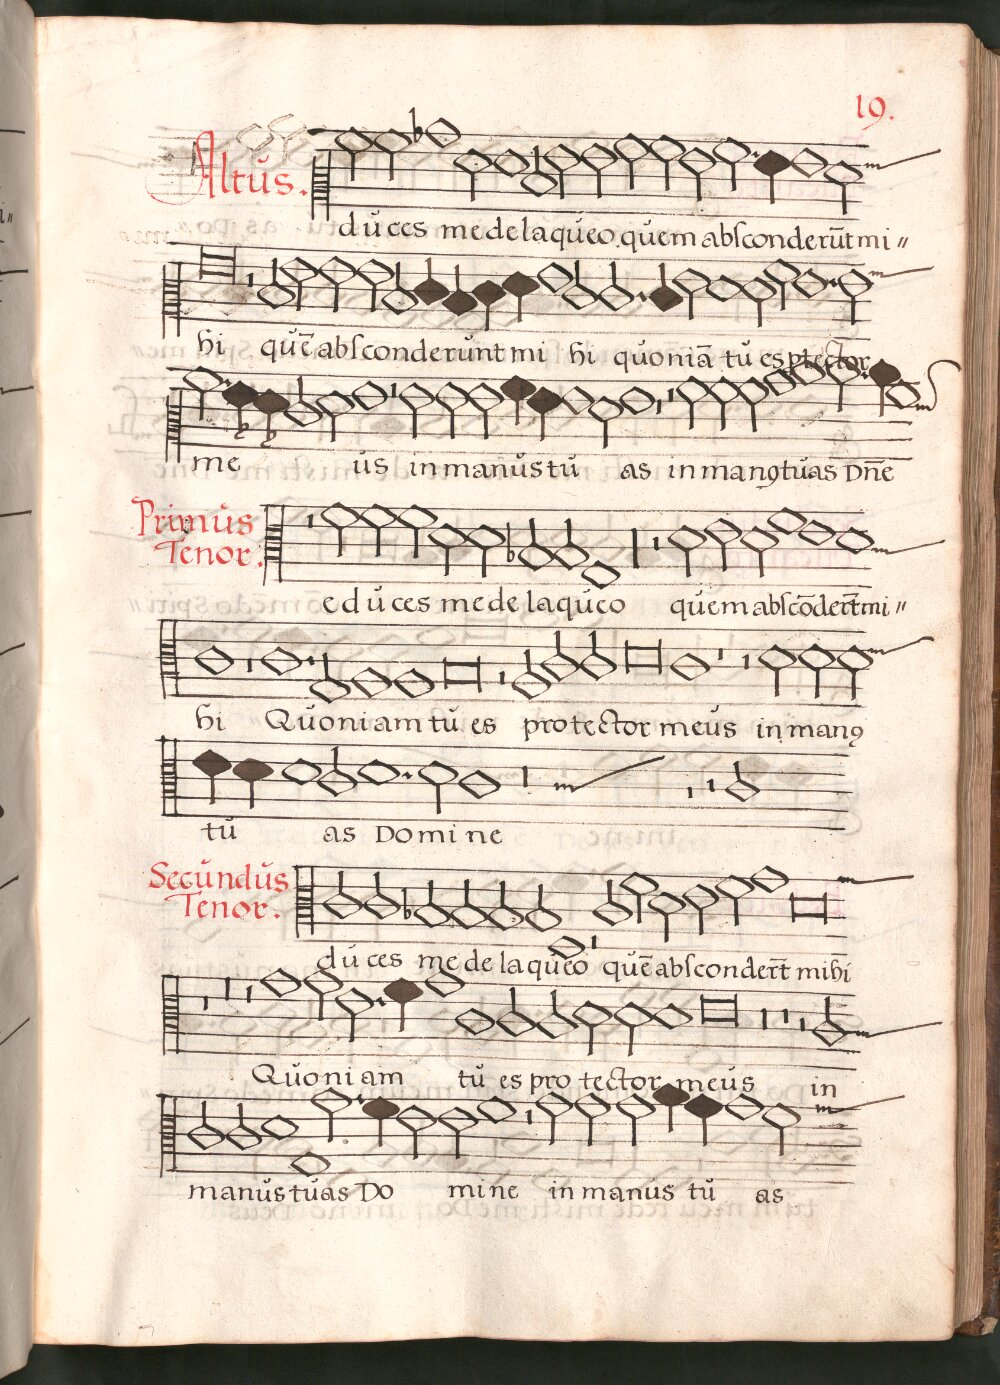 19.
Altus.
duces me de laqueo quem absconderūt mi〃
hi quē absconderunt mi hi quoniā tu es ptector
me us in manus tu as in man9 tuas Dn̄e
Primus
Tenor.
educes me de laqueo quem abscōdert̄ mi〃
hi Quoniam tu es protector meus in man9
tu as Domine
Secundus
Tenor.
duces me de laqueo quē abscondert̄ mihi
Quoniam tu es protector meus in
manus tuas Do mine in manus tu as